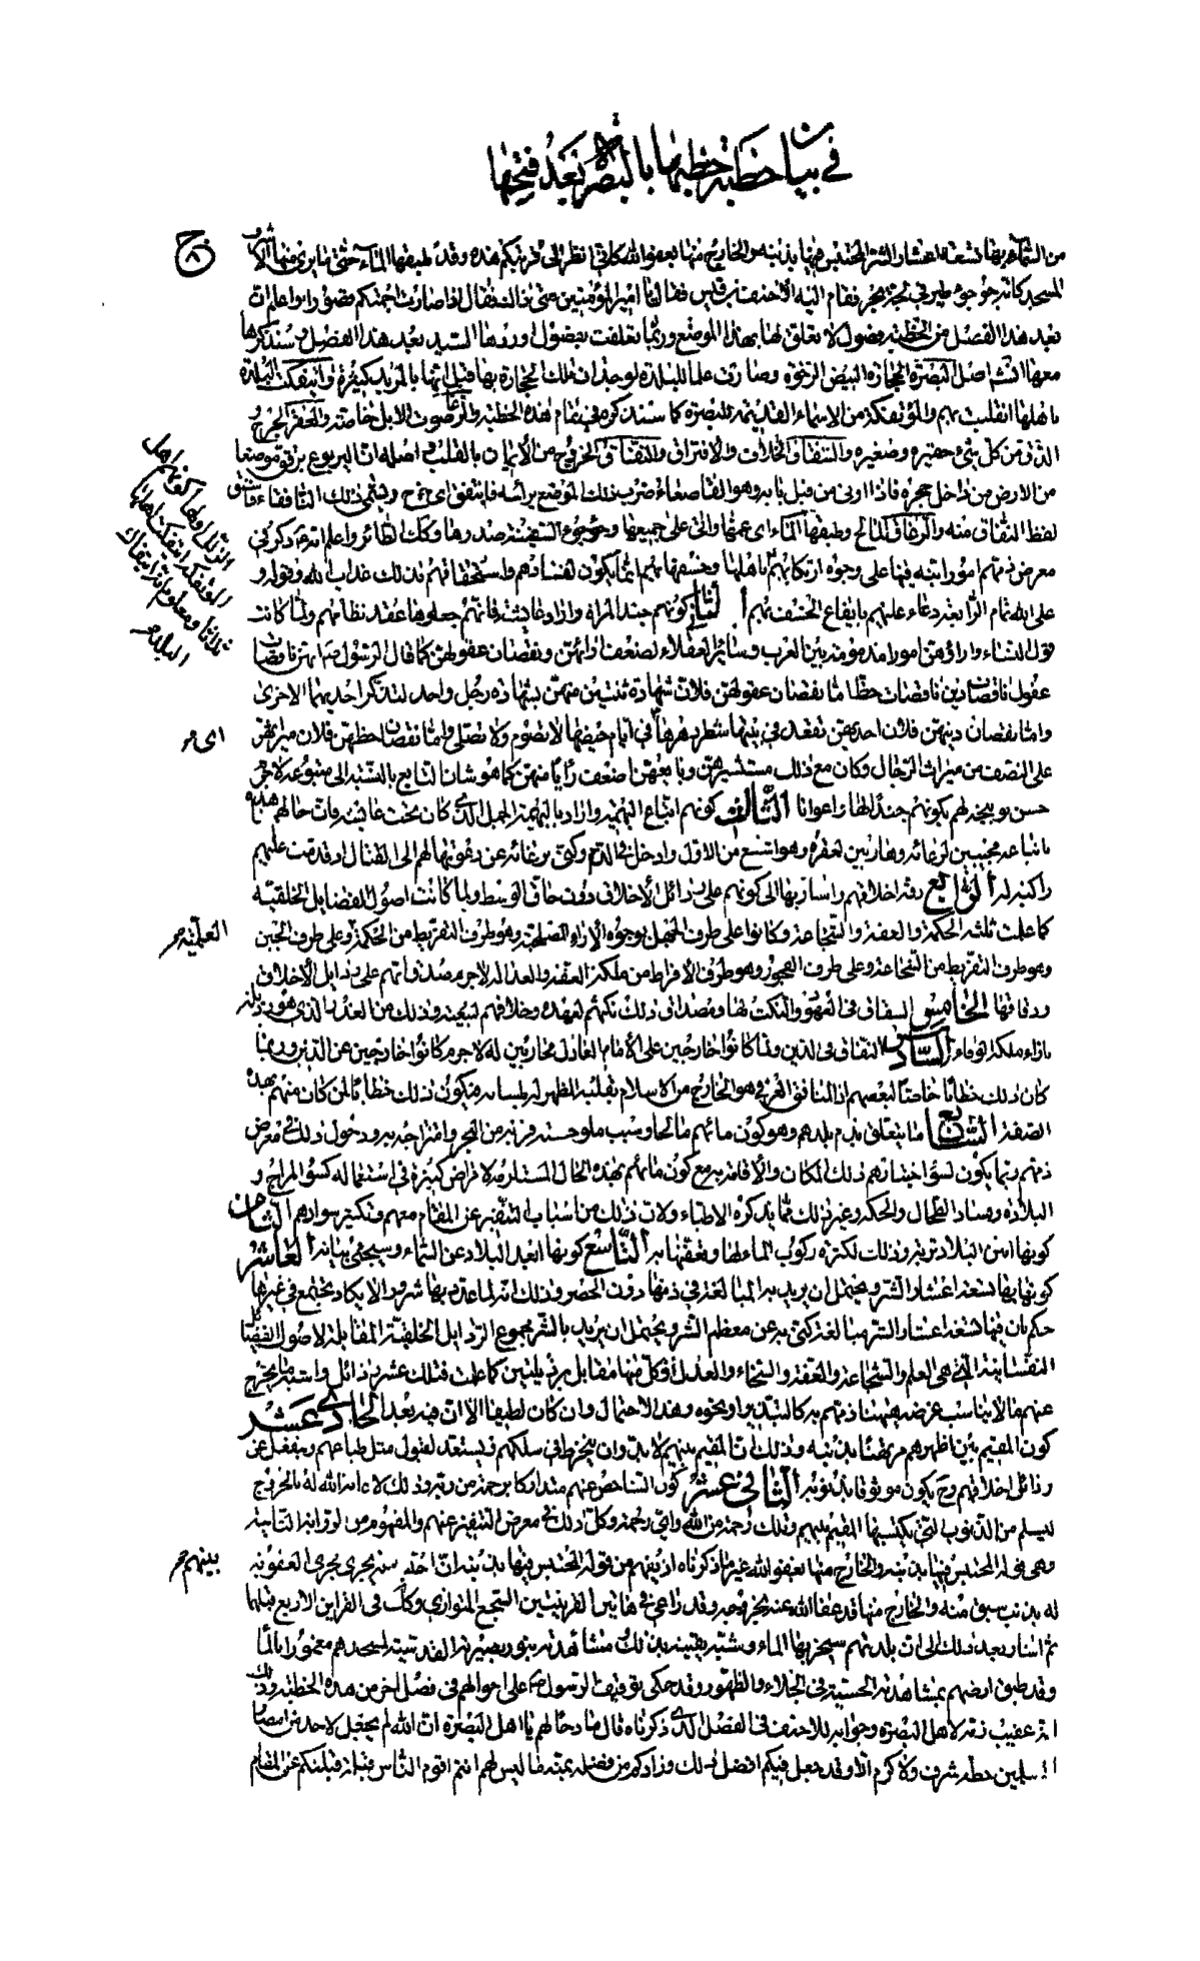 في بيان خطبة خطبها بالبصرة بعد فتحها
من السماء بها تسعة اعشار الشر المحتبس فيها بذنبه والخارج منها بعفو الله كاني انظر الى قريتكم هذه وقد طبقها الماء حتى ما يرى منها الا شرف
المسجد كانه جؤجؤ طير في لجة بحر فقام اليه الاحنف بن قيس فقال يا امير المؤمنين متى ذلك فقال اذا صارت اجمتكم قصورا واعلم ان
بعد هذا الفصل من الخطبة فصول لا تعلق لها بهذا الموضع وربما تعلقت بفصول اوردها السيد بعد هذا الفصل وسنذكرها
معها انشم اصل البصرة الحجارة البيض الرخوة وصارت علما للبلدة لوجدان تلك الحجارة بها قيل انها بالمربد كثيرة وايتفكت البلدة
باهلها انقلبت بهم والمؤتفكة من الاسماء القديمة للبصرة كما سنذكره في تمام هذه الخطبة والرغا صوت الابل خاصة والعقر الجرح
الدق من كل شئ حقيره وصغيره والشقاق الخلاف والافتراق والنفاق الخروج من الايمان بالقلب واصله ان اليربوع يرقق موضعا
من الارض من داخل جحره فاذا اوتي من قبل بابه وهو القاصعاء ضرب ذلك الموضع براسه فانتفق اى خرج ويسمى ذلك النافقاء فاشتق
لفظ النفاق منه والزعاق المالح وطبقها الماء اى عمها واتى على جميعها وجؤجؤ السفينة صدرها وكك الطائر واعلم انه ذكر في
معرض ذمهم امورا نبه فيها على وجوه ارتكابهم
الثاني كونهم جند المراة واراد عايشة فانهم جعلوها عقد نظامهم ولما كانت
قول النساء واراؤهن امورا مذمومة بين العرب وسائر العقلاء لضعف ارائهن ونقصان عقولهن كما قال الرسول ص انهن ناقصات
عقول ناقصات دين ناقصات حظ اما نقصان عقولهن فلان شهادة ثنتين منهن بشهادة رجل واحد لتذكر احديهما الاخرى
واما نقصان دينهن فلان احديهن تقعد في بيتها شطر دهرها اى ايام حيضها لا تصوم ولا تصلى واما نقصان حظهن فلان ميراثهن
على النصف من ميراث الرجال وكان مع ذلك مستشيرهن وتابعهن اضعف رايا منهن كما هو شان التابع بالنسبة الى متبوعه لا جرم
حسن توبيخه لهم بكونهم جندا لها واعوانا الثالث كونهم اتباع البهيمة واراد بالبهيمة الجمل الذى كان تحت عايشة فان حالهم
باتباعه مجيبين لرغائه وهاربين لعقره وهو اشنع من الاول وادخل في الذم وكنى برغائه عن دعوتها لهم الى القتال اذ قدمت عليهم
راكبة له الرابع دقة اخلاقهم واشار بها الى كونهم على رذائل الاخلاق دون حاق الوسط ولما كانت اصول الفضايل الخلقية
كما علمت ثلثة الحكمة والعفة والشجاعة وكانوا على طرف الجهل بوجوه الآراء المصلحية وهو طرف التفريط من الحكمة وعلى طرف الجبن
وهو طرف التفريط من الشجاعة وعلى طرف الفجور وهو طرف الافراط من ملكة العفة والعدالة لا جرم صدق انهم على رذايل الاخلاق
ودقاقها الخامس الشقاق في العهود والنكث لها ومصداق ذلك نكثهم لعهده وخلافهم لبيعته وذلك من الغدر الذى هو رذيلة
بازاء ملكة الوفاء السادس النفاق في الدين ولما كانوا خارجين على الامام العادل محاربين له لا جرم كانوا خارجين عن الدين وربما
كان ذلك خطابا خاصا لبعضهم اذ المنافق العرفي هو الخارج من الاسلام بقلبه المظهر له بلسانه فيكون ذلك خطابا لمن كان منهم بهذه
الصفة السابع ما يتعلق بذم بلدهم وهو كون مائهم مالحا وسبب ملوحته قربه من البحر وامتزاجه به ودخول ذلك في معرض
ذمهم ربما يكون لسوء اختيارهم ذلك المكان والاقامة به مع كون مائهم بهذه الحال المستلزمة لامراض كثيرة في استعماله كسوء المزاج و
البلادة وفساد الطحال والحكة وغير ذلك مما يذكره الاطباء ولان ذلك من اسباب التنفير عن المقام معهم وتكثير سوادهم الثامن
كونها انتن البلاد تربة وذلك لكثرة ركوب الماء لها وتعفنها به التاسع كونها ابعد البلاد عن السماء وسيجئ بيانه العاشر
كونها بها تسعة اعشار الشر ويحتمل ان يريد به المبالغة في ذمها دون الحصر وذلك انه لما عدد بها شرورا لا يكاد يجتمع في غيرها
حكم بان فيها تسعة اعشار الشر مبالغة كنى به عن معظم الشر ويحتمل ان يريد بالشر مجموع الرذايل الخلقية المقابلة لاصول الفضائل
النفسانية التي هي العلم والشجاعة والعفة والسخاء والعدل وكل منها مقابل برذيلتين كما علمت فتلك عشر رذائل
عنهم ما لا يناسب غرضه هيهنا ذمهم به كالتبذير او نحوه وهذا الاحتمال وان كان لطيفا الا ان فيه بعد الحادى عشر
كون المقيم بين اظهرهم مرتهنا بذنبه وذلك ان المقيم بينهم لا بد وان ينخرط في سلكهم ويستعد لقبول مثل طباعهم وينفعل عن
رذائل اخلاقهم وح يكون موثوقا بذنوبه الثاني عشر كون الشاخص عنهم متداركا برحمة من ربه وذلك لاعانة الله له بالخروج
ليسلم من الذنوب التي يكتسبها المقيم بينهم وتلك رحمة من الله واى رحمة وكل ذلك في معرض التنفير عنهم والمفهوم من الرواية الثانية
وهي قوله المحتبس فيها بذنبه والخارج منها بعفو الله غير ما ذكرناه اذ يفهم من قوله المحتبس فيها بذنبه ان احتباسه يجرى مجرى العقوبة
له بذنب سبق منه والخارج منها قد عفا الله عنه بخروجه وقد راعى في هاتين القرينتين السجع المتوازى وكك في القراين الاربع قبلها
ثم اشار بعد ذلك الى ان بلدتهم سيخربها الماء وشبه يقينه بذلك ومشاهدته بنور بصيرته القدسية لمسجدهم مغمورا بالماء
وقد طبق ارضهم بمشاهدته الحسية في الجلاء والظهور وقد حكى توقيف الرسول ص على احوالهم في فصل اخر من هذه الخطبة وذلك
انه عقيب ذمه لاهل البصرة وجوابه للاحنف في الفصل الذى ذكرناه قال مادحا لهم يا اهل البصرة ان الله لم يجعل لاحد من امصار
المسلمين خطة شرف ولا كرم الا وقد جعل فيكم افضل ذلك وزادكم من فضله بمنه ما ليس لهم انتم اقوم الناس قبلة قبلتكم على المقام
اى
العلمية
بينهم